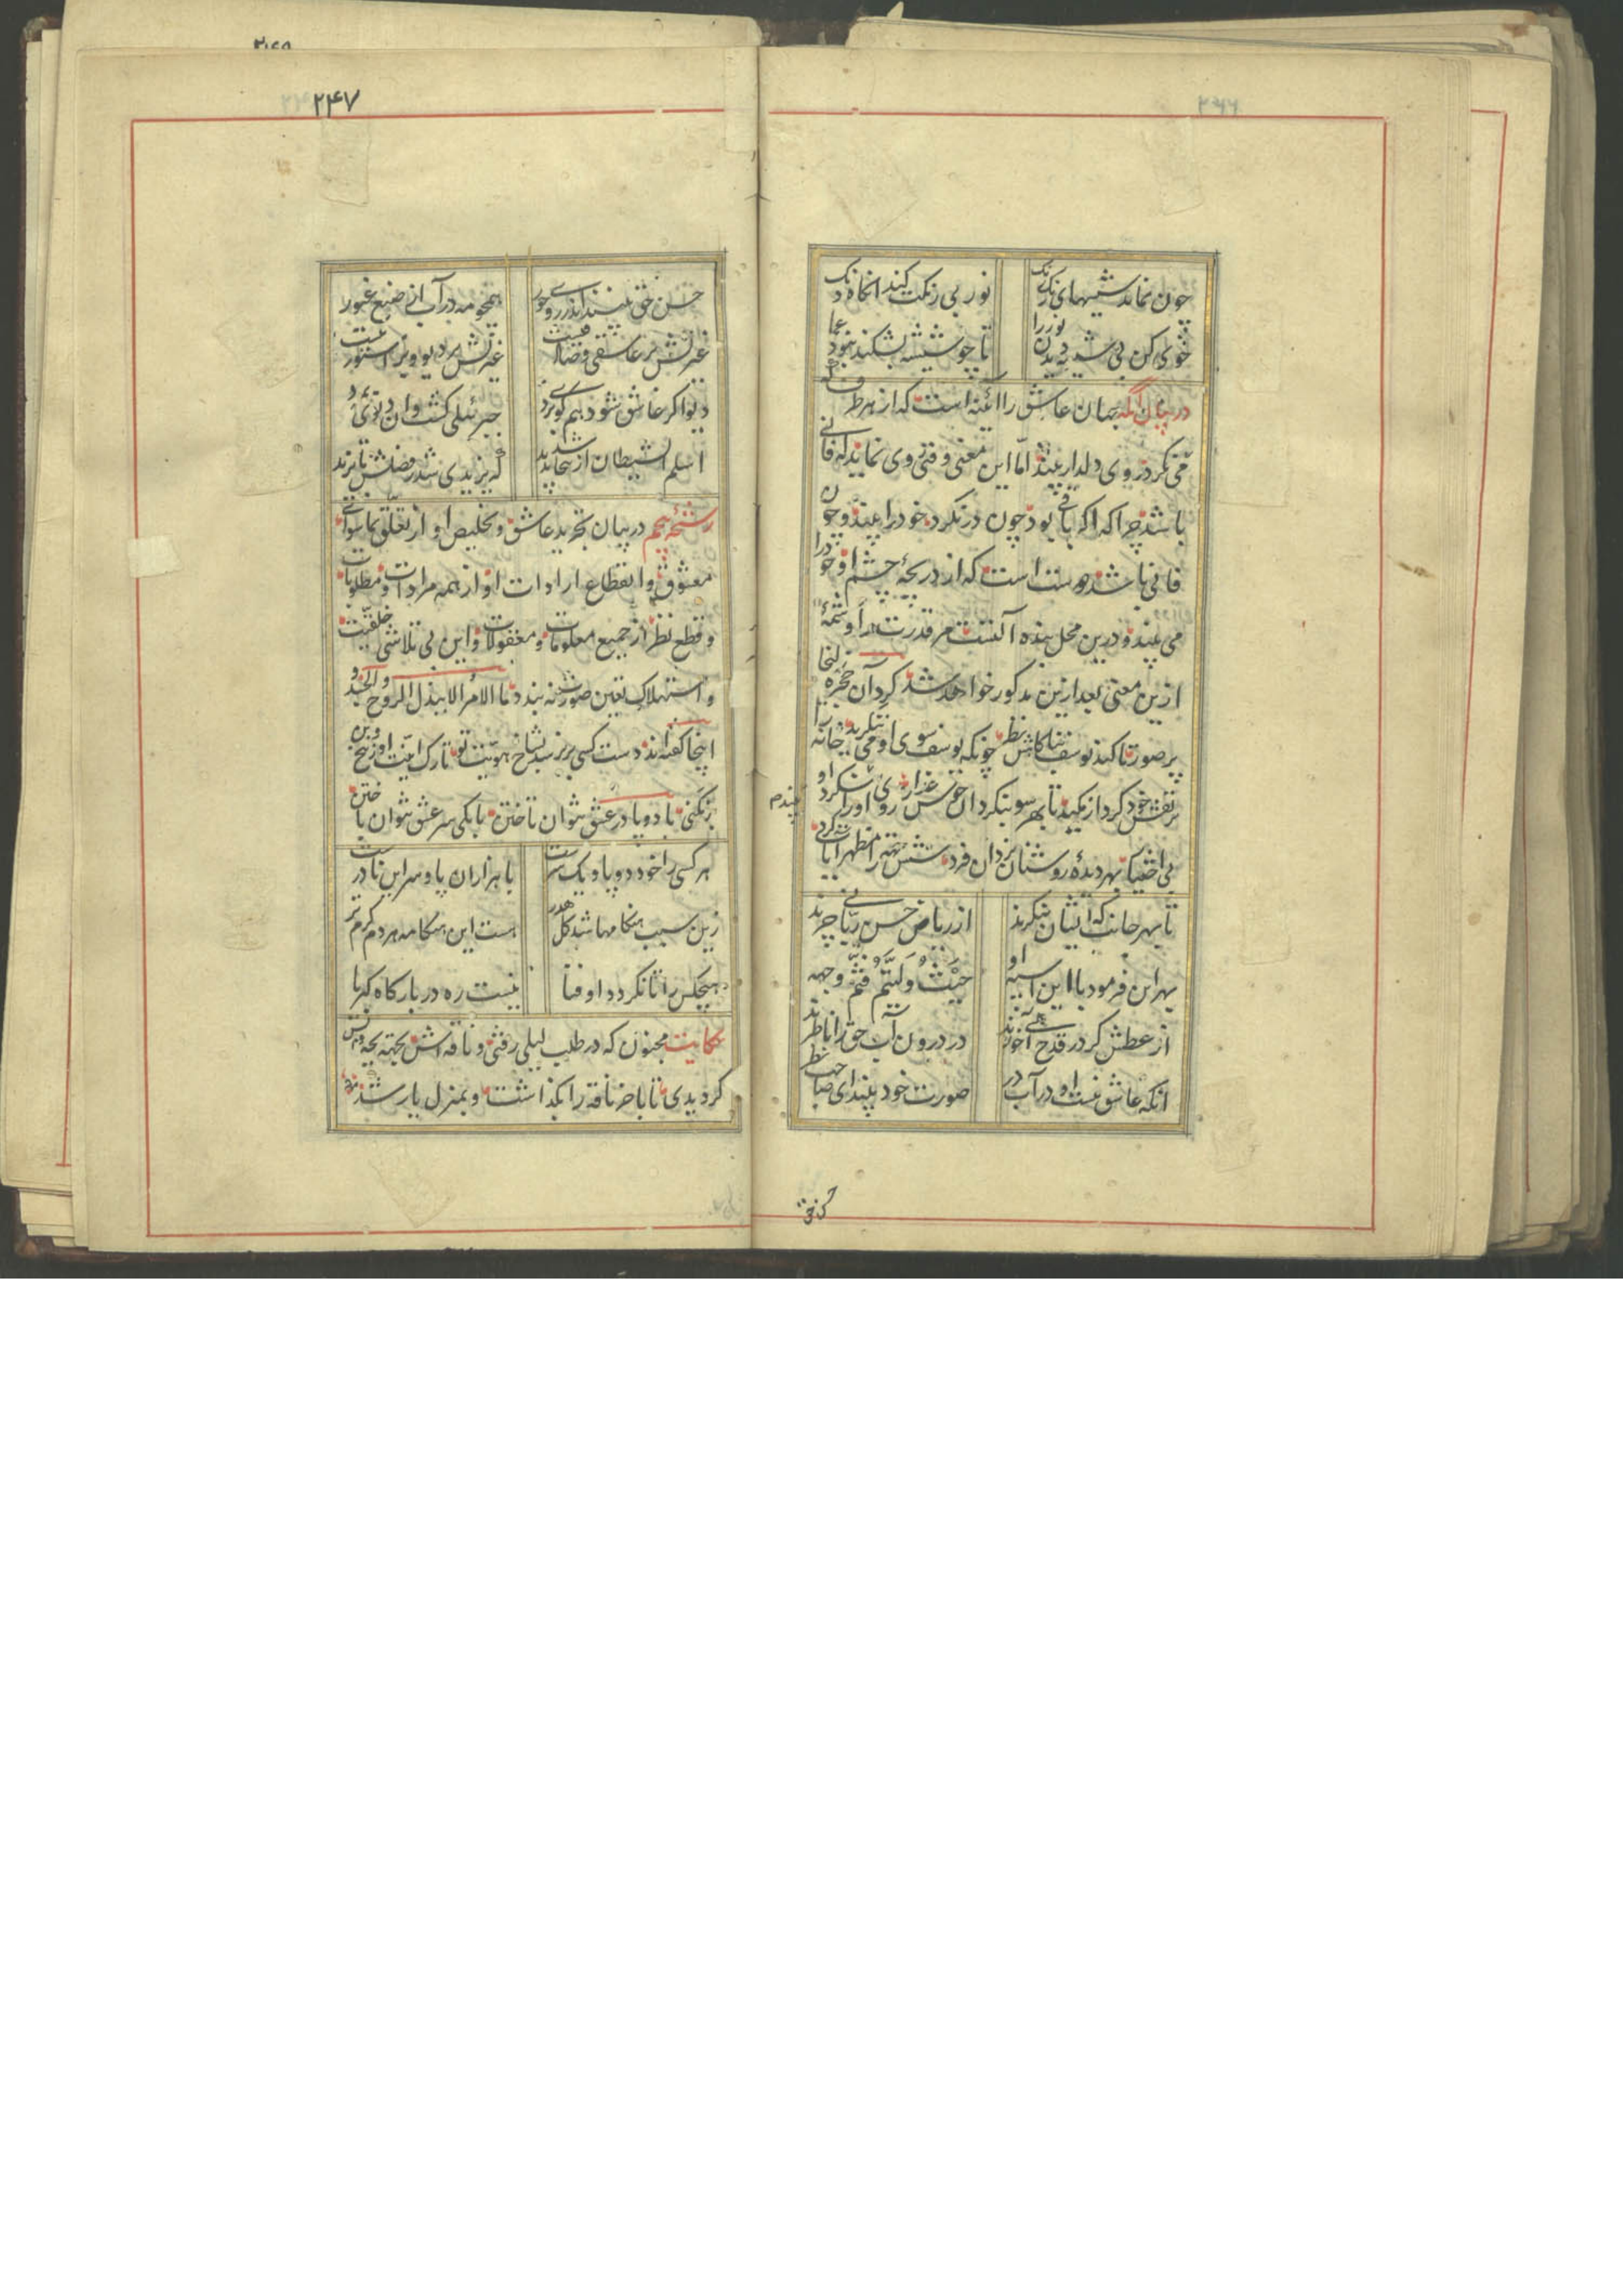 ۲۴۶
چون نماند شیشهای رنگ رنگ
نور بی رنگت کند انگاه دنگ
خوی کن بی شیشه دیدن نور را
تا چو شیشه بشکند نبود عما
در بیان آنکه جهان عاشق را آئینه است که از هر طرف که
می نگرد روی دلدار بیند اما این معنی وقتی روی نماید که فانی
باشد چرا که اگر باقی بود چون در نگرد خود را بیند و چون
فانی باشد دوست است که از دریچهٔ چشم او خود را
می بیند و درین محل بنده آلتست مر قدرت را و تتمهٔ
ازین معنی بعد ازین مذکور خواهد شد کرد آن حجره زلیخا
پر صور تا کند یوسف بناکامش نظر چونکه یوسف سوی او می ننگرید خانه را
پر نقش خود کرد از مکید تا بهر سو بنگرد آن خوش عذار روی او را بیند او
بی اختیار بهر دیدهٔ روشنان یزدان فرد شش جهة را مظهر آیات کرد
تا بهر جانب که ایشان بنگرند
از ریاض حسن ربانی چرند
بهر این فرمود با این اسپه او
حیث ولیتم فثم وجهه
از عطش گر در قدح آبی خورند
در درون آب حق را ناظرند
انکه عاشق نیست او در آب در
صورت خود بیند ای صاحب نظر
۲۴۷
حسن حق بینند اندر روی حور
همچو مه در آب از صنع غیور
غیرتش بر عاشقی و صادقیست
غیرتش بر دیو و بر استور نیست
دیو اگر عاشق شود هم گوی برد
جبرئیلی گشت و ان دیوی بمرد
اسلم الشیطان ازینجا شد پدید
که یزیدی شد ز فضلش بایزید
رشحهٔ پنجم در بیان تجرید عاشق و تخلیص او از تعلق بماسوای
معشوق و انقطاع ارادات او از همه مرادات و مطلوبات
و قطع نظر از جمیع معلومات و معقولات و این بی تلاشی خلقیت
و استهلاک تعین صورت نه بندد ما الامر الا ببذل الروح و الجسد و
اینجا گفته اند دست کسی بر نرسد بشاخ هویت تو تا رگ انیت او ز بیخ و بن
بر نکنی با دو پا در عشق نتوان تاختن با یکی سر عشق نتوان باختن
هر کسی را خود دو پا و یک سرست
با هزاران پا و سر این نادرست
زین سبب هنگامها شد کل هدر
هست این هنگامه هر دم گرم تر
هیچکس را تا نگردد او فنا
نیست ره در بارگاه کبریا
حکایت مجنون که در طلب لیلی رفتی و ناقه اش بجهتهٔ بچه واپس
گردیدی تا باخر ناقه را بگذاشت و بمنزل یار شد